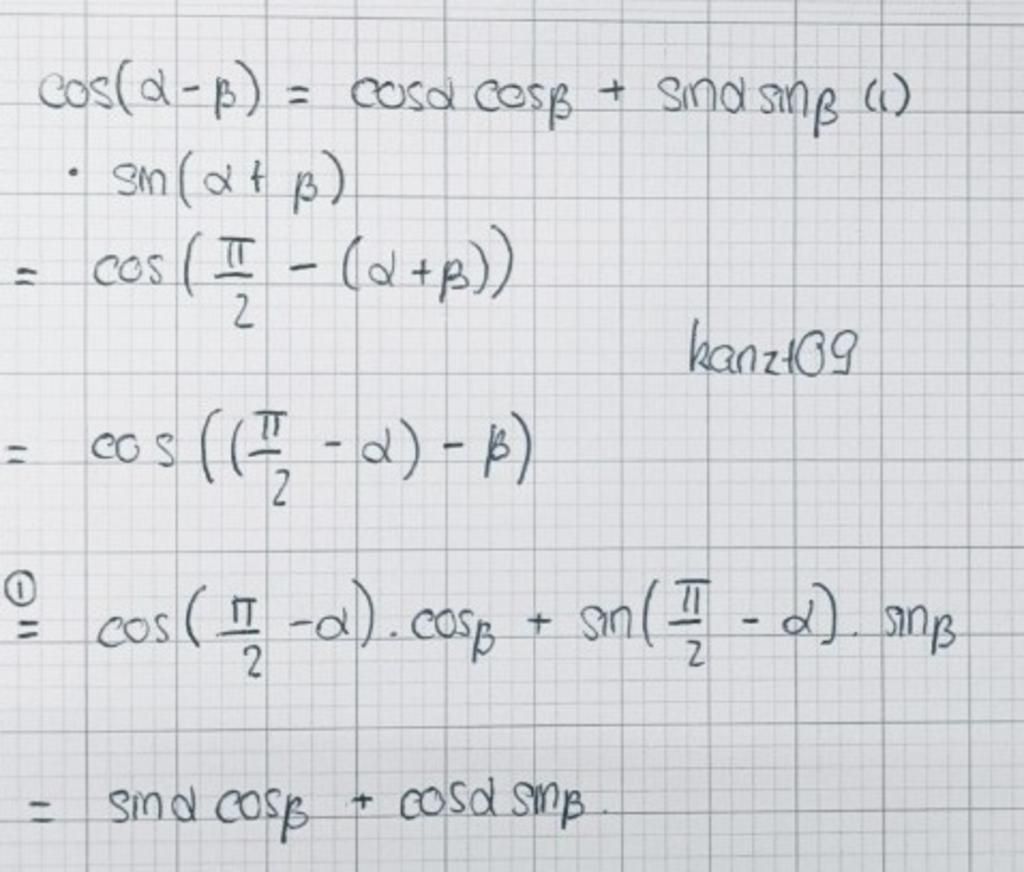 cos(α - β) = cosα cosβ + sinα sinβ (1)
· sin(α + β)
= cos(π/2 - (α + β))
kanzt09
= cos((π/2 - α) - β)
① = cos(π/2 - α) . cosβ + sin(π/2 - α) . sinβ
= sinα cosβ + cosα sinβ.